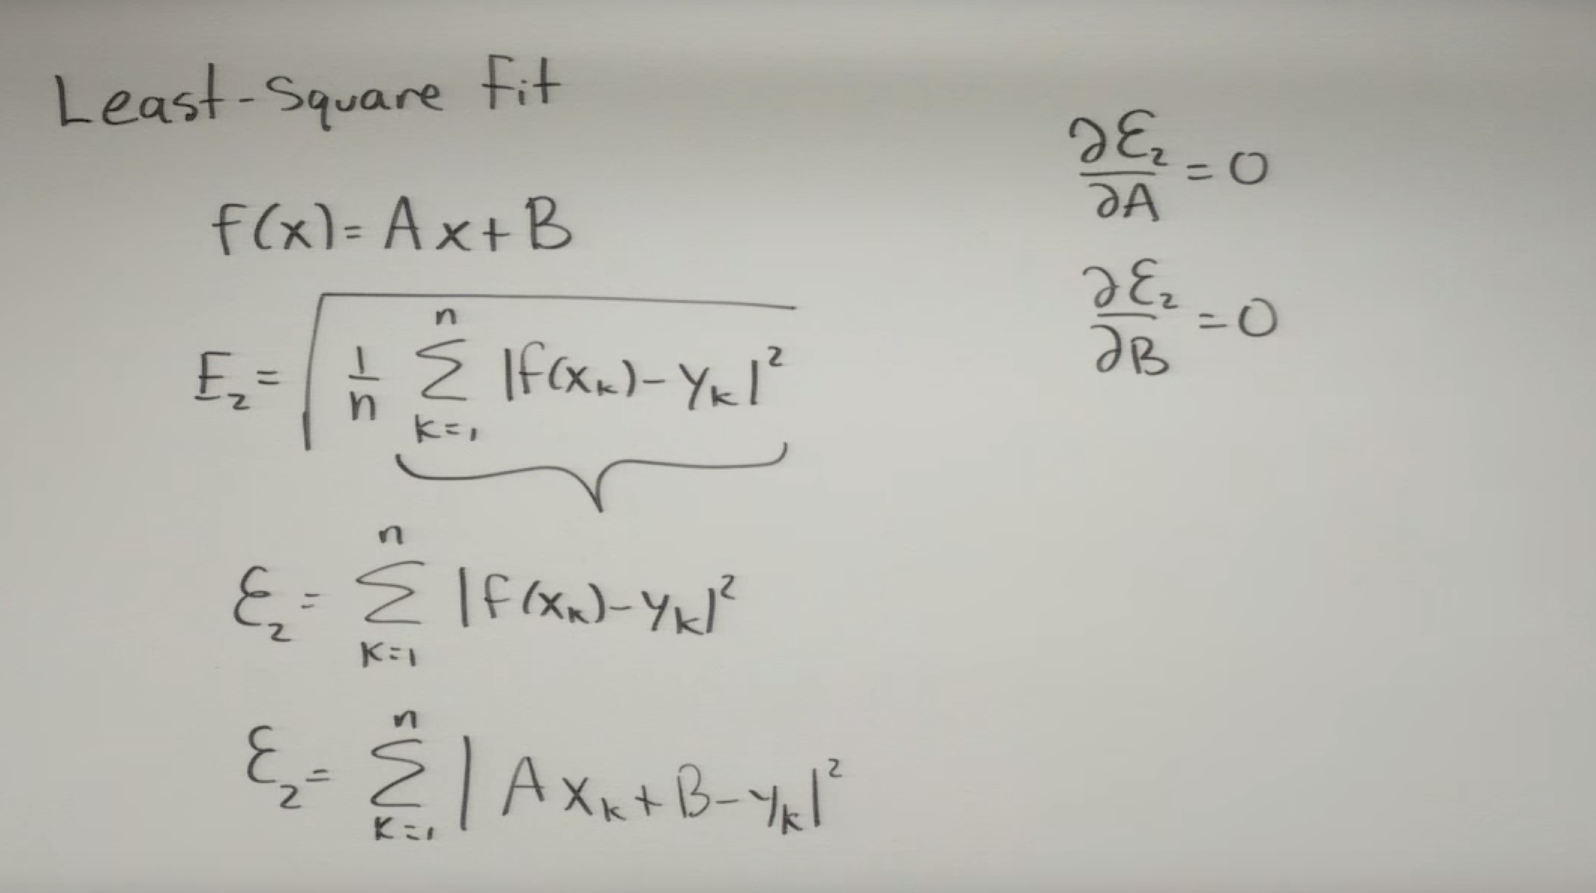 Least-Square Fit
f(x) = Ax + B
E₂ = √( 1/n ∑ₖ₌₁ⁿ |f(xₖ) - yₖ|² )
ℰ₂ = ∑ₖ₌₁ⁿ |f(xₖ) - yₖ|²
ℰ₂ = ∑ₖ₌₁ⁿ | Axₖ + B - yₖ|²
∂ℰ₂/∂A = 0
∂ℰ₂/∂B = 0